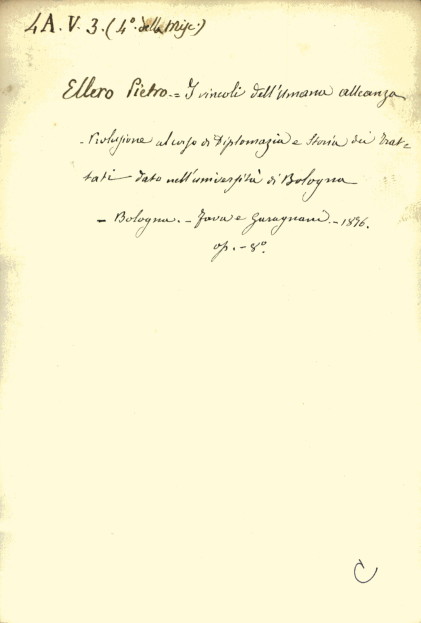 4A. V. 3. (4º. della Misc.)
Ellero Pietro.= I vincoli dell'umana alleanza
- Prolusione al corso di Diplomazia e Storia dei Trat=
tati dato nell'università di Bologna
- Bologna. - Fava e Garagnani. - 1876.
op. - 8º.
C